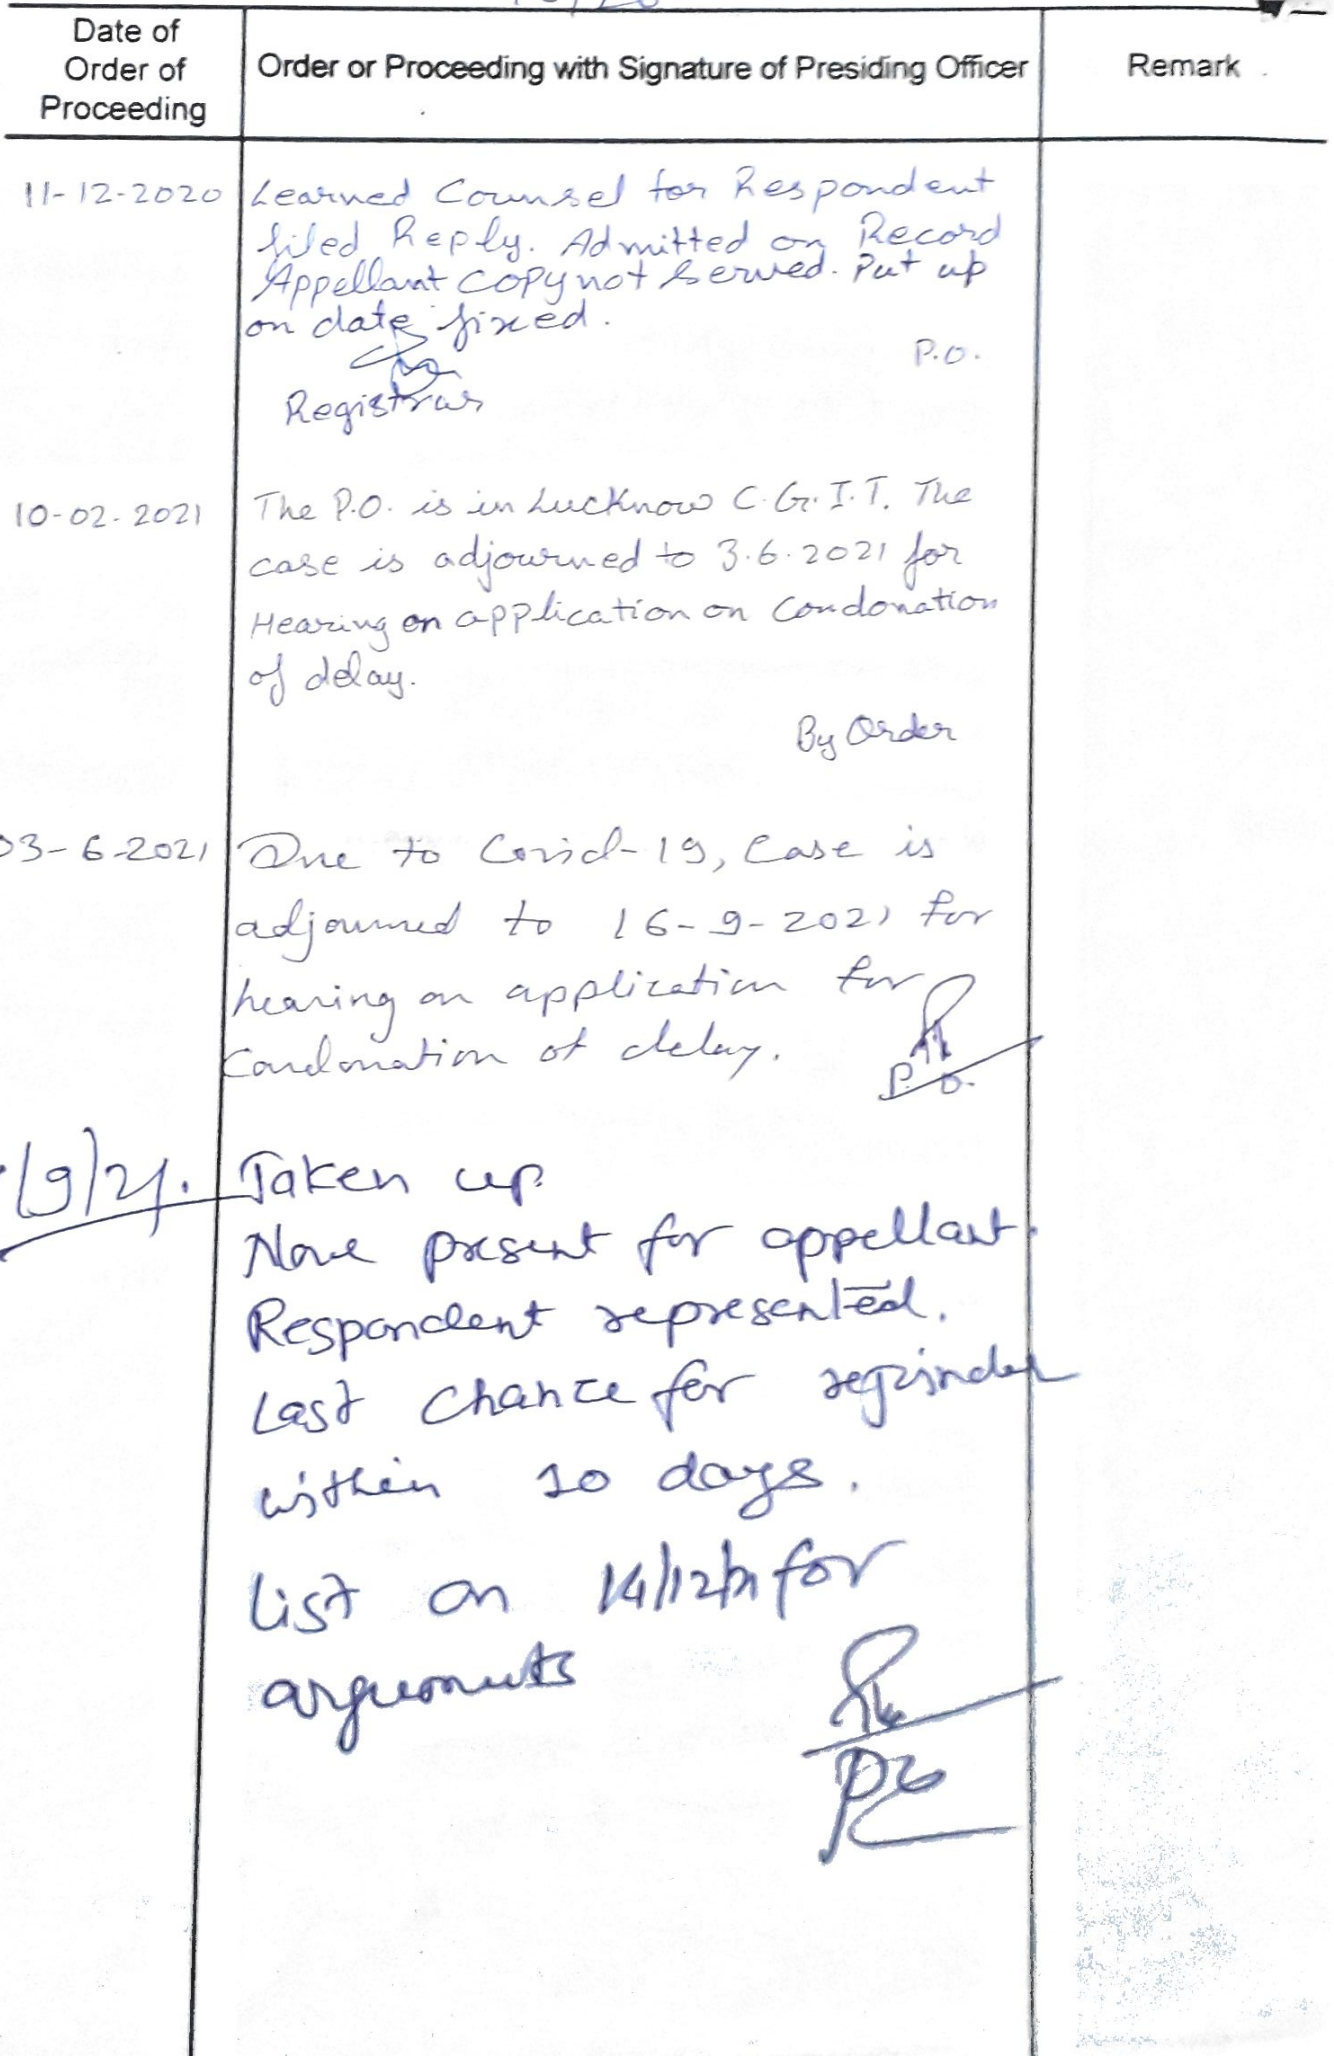 Date of
Order of
Proceeding
Order or Proceeding with Signature of Presiding Officer
Remark
11-12-2020
Learned Counsel for Respondent
filed Reply. Admitted on Record
Appellant copy not served. Put up
on date fixed.
P.O.
Registrar
10-02-2021
The P.O. is in Lucknow C.G.I.T. The
case is adjourned to 3.6.2021 for
Hearing on application on Condonation
of delay.
By Order
03-6-2021
Due to Covid-19, Case is
adjourned to 16-9-2021 for
hearing on application for
Condonation of delay.
P.O.
/9/21.
Taken up
None present for appellant.
Respondent represented.
Last chance for rejoinder
within 10 days.
List on 14/12/21 for
arguments
PO